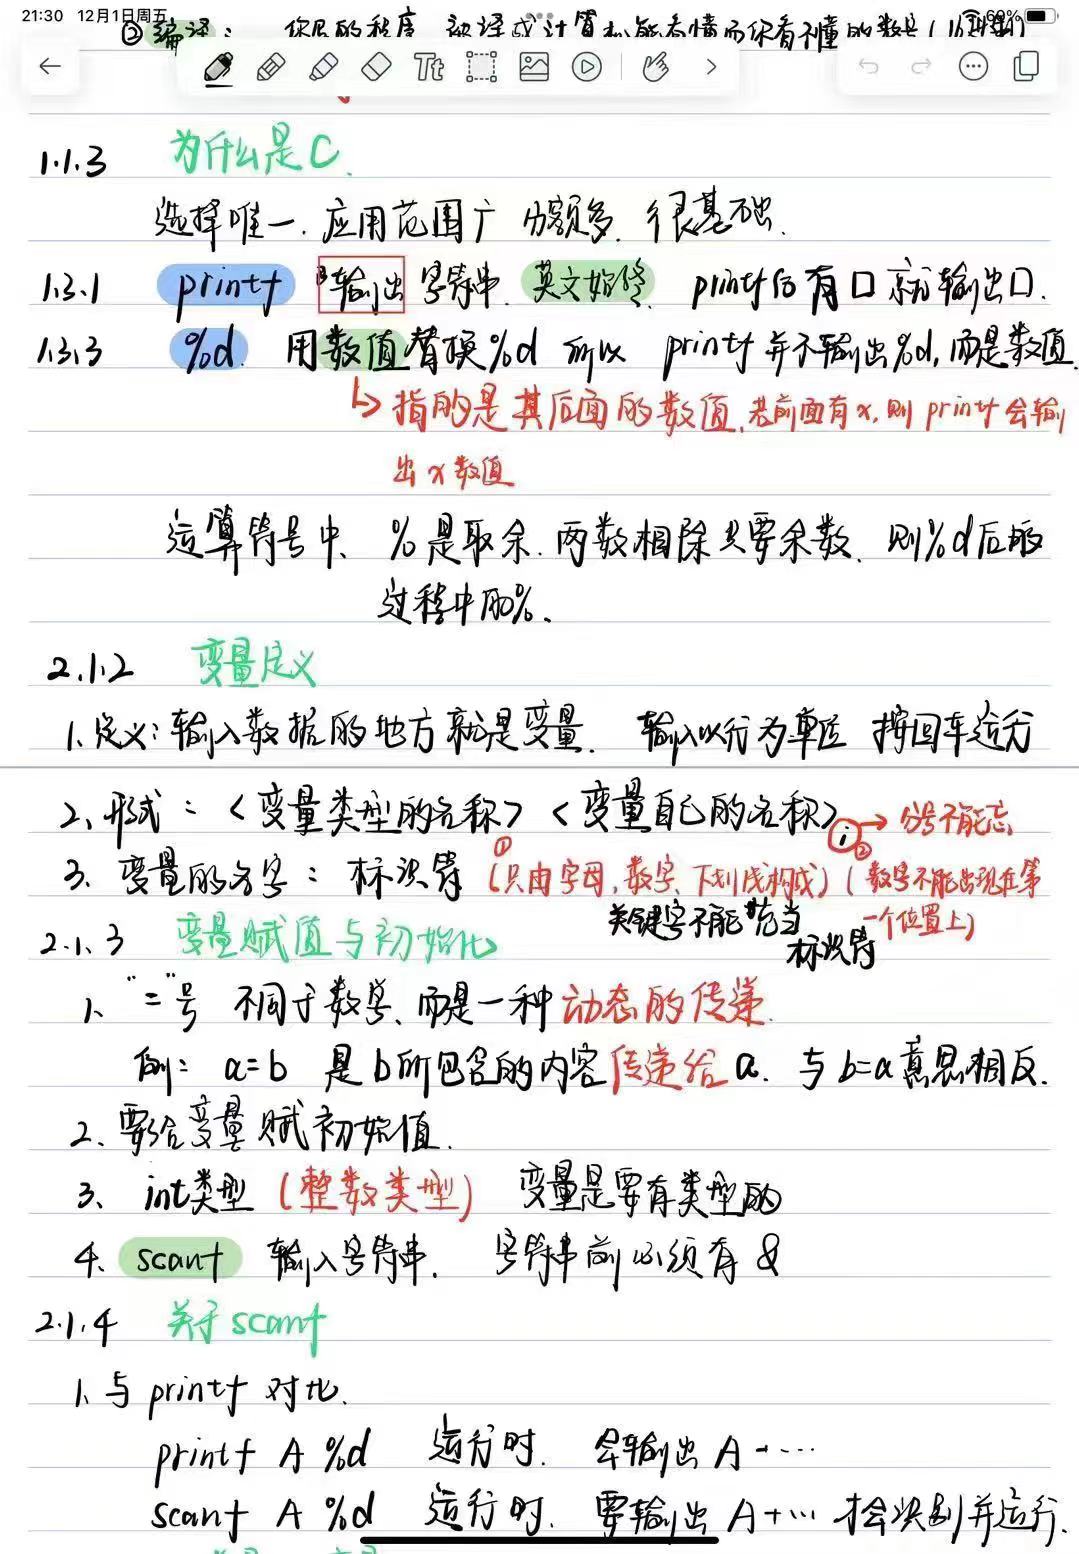 21:30 12月1日周五 69%
② 编译：
Tt
1.1.3 为什么是C.
选择唯一. 应用范围广 份额多. 很基础.
1.3.1 printf 输出 字符串. 英文 printf后有口就输出口.
1.3.3 %d. 用数值替换%d 所以 printf并不输出%d, 而是数值.
指的是其后面的数值, 若前面有x, 则 printf会输
出x数值
运算符号中、 %是取余. 两数相除只要余数、 则%d后的
过程中用%、
2.1.2 变量定义
1、定义: 输入数据的地方就是变量. 输入以行为单位 按回车运行
2、形式: <变量类型的名称> <变量自己的名称>; → 分号不能忘
3、变量的名字: 标识符 ①(只由字母, 数字、下划线构成) ②(数字不能出现在第
关键字不能充当 一个位置上)
标识符
2.1.3 变量赋值与初始化
1、"="号 不同于数学、而是一种动态的传递.
例: a=b 是b所包含的内容传递给a. 与b=a意思相反.
2、要给变量赋初始值.
3、int类型 (整数类型) 变量是要有类型的
4. scanf 输入字符串. 字符串前必须有&
2.1.4 关于scanf
1、与printf对比.
printf A %d 运行时. 会输出A+···
scanf A %d 运行时. 要输出A+··· 才会识别并运行.